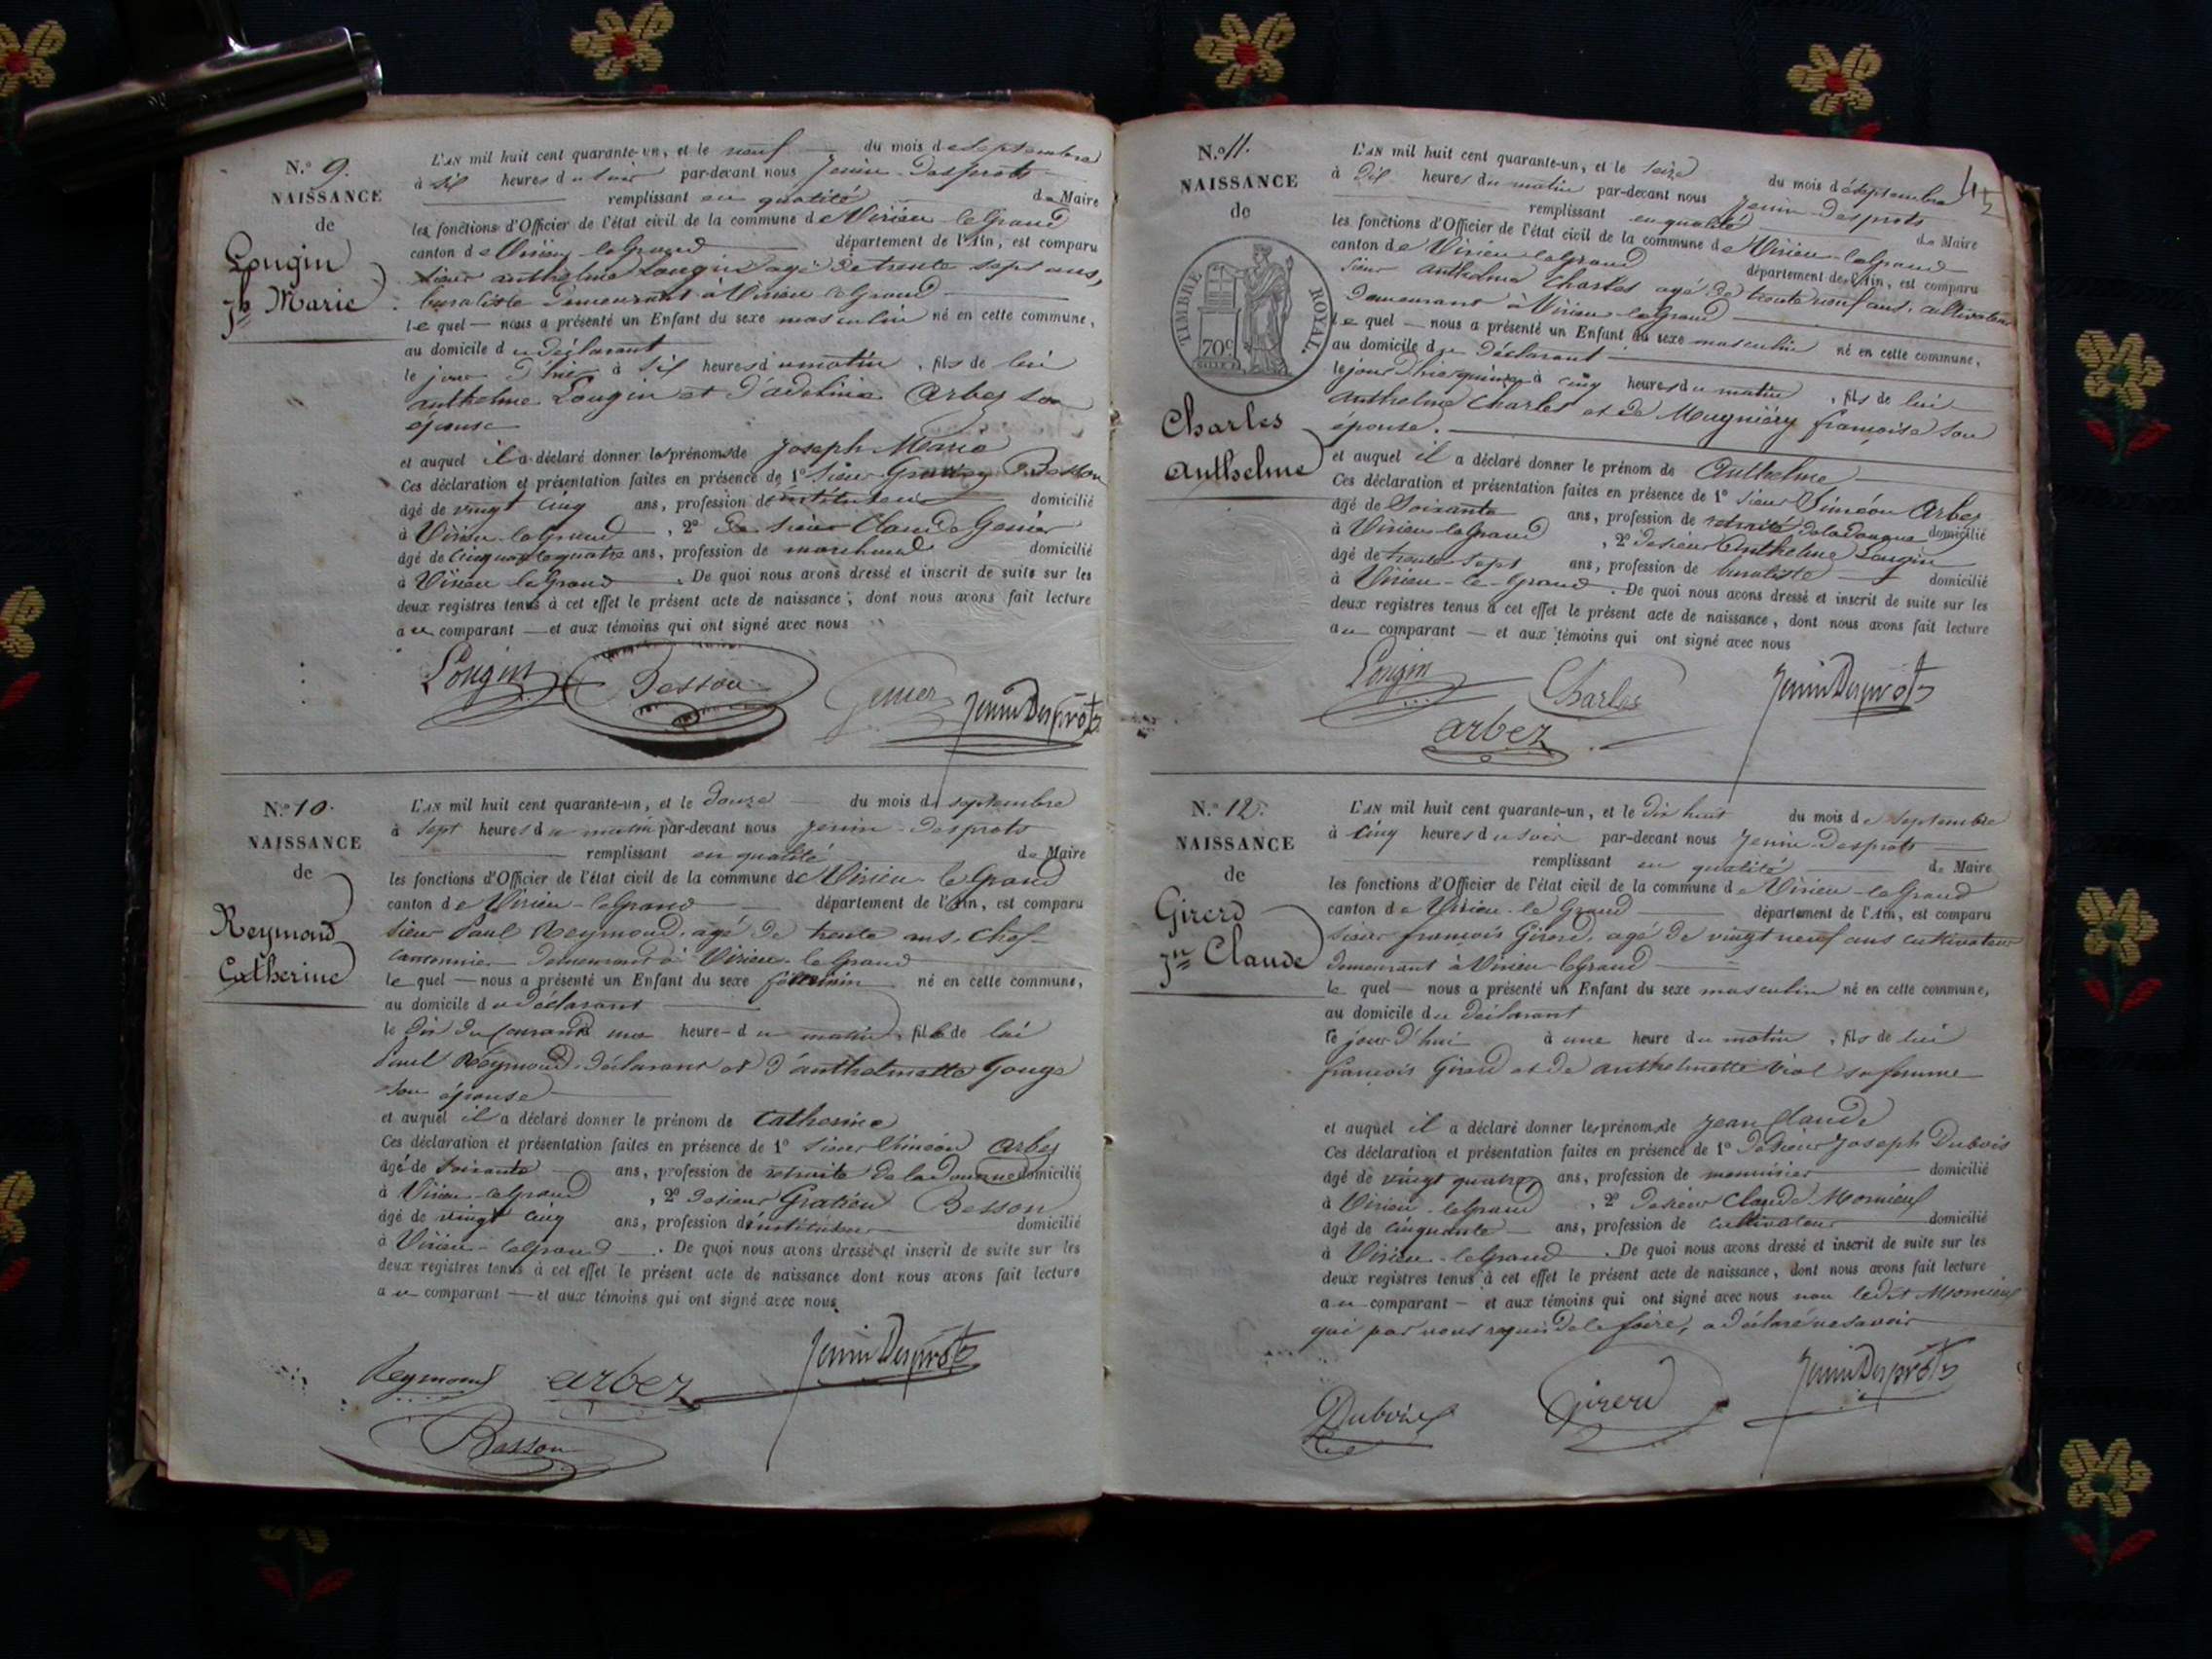 N.o 9.
NAISSANCE
de
Lougin
Jh Marie
L'AN mil huit cent quarante-un, et le neuf du mois de septembre
à six heures du soir par-devant nous Jenin Desprots
remplissant en qualité de Maire
les fonctions d'Officier de l'état civil de la commune de Virieu le Grand
canton de Virieu le Grand département de l'Ain, est comparu
sieur anthelme Lougin agé de trente sept ans,
buraliste demeurant à Virieu le Grand
lequel — nous a présenté un Enfant du sexe masculin né en cette commune,
au domicile du déclarant
le jour d'hier à six heures du matin, fils de lui
anthelme Lougin et d'adeline Arbez son
épouse
et auquel il a déclaré donner les prénoms de Joseph Marie
Ces déclaration et présentation faites en présence de 1o sieur Besson
âgé de vingt cinq ans, profession de instituteur domicilié
à Virieu le Grand, 2o De sieur Claude Genier
âgé de cinquante quatre ans, profession de marchand domicilié
à Virieu le Grand. De quoi nous avons dressé et inscrit de suite sur les
deux registres tenus à cet effet le présent acte de naissance, dont nous avons fait lecture
au comparant — et aux témoins qui ont signé avec nous
Lougin Besson Genier Jenin Desprots
N.o 10.
NAISSANCE
de
Reymond
Catherine
L'AN mil huit cent quarante-un, et le douze du mois de septembre
à sept heures du matin par-devant nous Jenin Desprots
remplissant en qualité de Maire
les fonctions d'Officier de l'état civil de la commune de Virieu le Grand
canton de Virieu-le Grand département de l'Ain, est comparu
sieur Paul Reymond, agé de trente ans, Chef-
cantonnier demeurant à Virieu-le Grand
lequel — nous a présenté un Enfant du sexe féminin né en cette commune,
au domicile du déclarant
le dix du courant une heure du matin, fille de lui
Paul Reymond, déclarant et d'anthelmette Gouge
son épouse
et auquel il a déclaré donner le prénom de Catherine
Ces déclaration et présentation faites en présence de 1o sieur Siméon Arbez
âgé de soixante ans, profession de retraité de la Douane domicilié
à Virieu-le Grand, 2o de sieur Gratien Besson
âgé de vingt cinq ans, profession d'instituteur domicilié
à Virieu-le Grand. De quoi nous avons dressé et inscrit de suite sur les
deux registres tenus à cet effet le présent acte de naissance dont nous avons fait lecture
au comparant — et aux témoins qui ont signé avec nous
Reymond arbez Jenin Desprots
Besson
45
N.o 11.
NAISSANCE
de
TIMBRE ROYAL.
70c
Charles
Anthelme
L'AN mil huit cent quarante-un, et le seize du mois de septembre
à dix heures du matin par-devant nous Jenin Desprots
remplissant en qualité de Maire
les fonctions d'Officier de l'état civil de la commune de Virieu-le Grand
canton de Virieu le Grand département de l'Ain, est comparu
sieur anthelme Charles agé de trente neuf ans, cultivateur
demeurant à Virieu-le Grand
lequel — nous a présenté un Enfant du sexe masculin né en cette commune,
au domicile du déclarant
le jour d'hier quinze à cinq heures du matin, fils de lui
anthelme Charles et de Mugniéry françoise son
épouse.
et auquel il a déclaré donner le prénom de Anthelme
Ces déclaration et présentation faites en présence de 1o sieur Siméon Arbez
âgé de Soixante ans, profession de retraité de la Douane domicilié
à Virieu-le Grand, 2o de sieur Anthelme Lougin
âgé de trente sept ans, profession de buraliste domicilié
à Virieu-le-Grand. De quoi nous avons dressé et inscrit de suite sur les
deux registres tenus à cet effet le présent acte de naissance, dont nous avons fait lecture
au comparant — et aux témoins qui ont signé avec nous
Lougin Charles Jenin Desprots
arbez
N.o 12.
NAISSANCE
de
Girerd
Jn Claude
L'AN mil huit cent quarante-un, et le dix huit du mois de septembre
à cinq heures du soir par-devant nous Jenin Desprots
remplissant en qualité de Maire
les fonctions d'Officier de l'état civil de la commune de Virieu-le Grand
canton de Virieu-le Grand département de l'Ain, est comparu
sieur françois Girerd, agé de vingt neuf ans cultivateur
demeurant à Virieu-le Grand
lequel — nous a présenté un Enfant du sexe masculin né en cette commune,
au domicile du déclarant
ce jour d'hui à une heure du matin, fils de lui
françois Girerd et de anthelmette Viol sa femme
et auquel il a déclaré donner les prénoms de Jean Claude
Ces déclaration et présentation faites en présence de 1o de sieur Joseph Dubois
âgé de vingt quatre ans, profession de menuisier domicilié
à Virieu-le Grand, 2o de sieur Claude Mornieux
âgé de cinquante ans, profession de cultivateur domicilié
à Virieu-le Grand. De quoi nous avons dressé et inscrit de suite sur les
deux registres tenus à cet effet le présent acte de naissance, dont nous avons fait lecture
au comparant — et aux témoins qui ont signé avec nous non ledit Mornieux
qui par nous requis de le faire, a déclaré ne savoir
Dubois Girerd Jenin Desprots